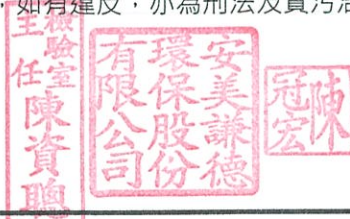 ，如有違反，亦為刑法及貪污治
檢驗室
主任
陳資聰
安美謙德
環保股份
有限公司
陳冠宏